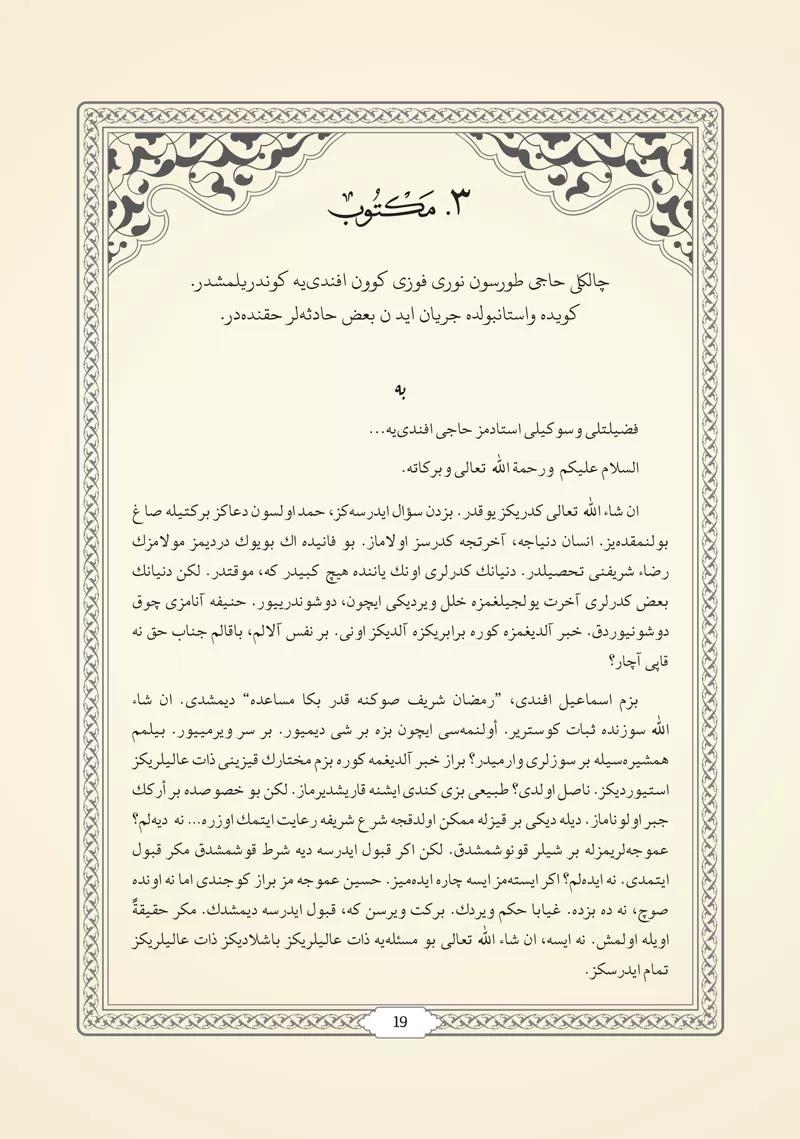 ٣. مَكْتُوب
چالكلى حاجى طورسون نورى فوزى كوون افندى‌يه كوندريلمشدر.
كويده واستانبولده جريان ايد ن بعض حادثه‌لر حقنده‌در.
به
فضيلتلى وسوكيلى استادمز حاجى افندى‌يه...
السلام عليكم ورحمة الله تعالى وبركاته.
ان شاء الله تعالى كدريكز يوقدر. بزدن سؤال ايدرسه‌كز، حمد اولسون دعاكز بركتيله صاغ
بولنمقده‌يز. انسان دنياجه، آخرتجه كدرسز اولاماز. بو فانيده اك بويوك درديمز مولامزك
رضاء شريفنى تحصيلدر. دنيانك كدرلرى اونك ياننده هيچ كبيدر كه، موقتدر. لكن دنيانك
بعض كدرلرى آخرت يولجيلغمزه خلل ويرديكى ايچون، دوشوندرييور. حنيفه آنامزى چوق
دوشونيوردق. خبر آلديغمزه كوره برابريكزه آلديكز اونى. بر نفس آلالم، باقالم جناب حق نه
قاپى آچار؟
بزم اسماعيل افندى، ”رمضان شريف صوكنه قدر بكا مساعده“ ديمشدى. ان شاء
الله سوزنده ثبات كوسترير. أولنمه‌سى ايچون بزه بر شى ديميور. بر سر ويرمييور. بيلمم
همشيره‌سيله بر سوزلرى وارميدر؟ براز خبر آلديغمه كوره بزم مختارك قيزينى ذات عاليلريكز
استيورديكز. ناصل اولدى؟ طبيعى بزى كندى ايشنه قاريشديرماز. لكن بو خصوصده بر أركك
جبر اولوناماز. ديله ديكى بر قيزله ممكن اولدقجه شرع شريفه رعايت ايتمك اوزره... نه ديه‌لم؟
عموجه‌لريمزله بر شيلر قونوشمشدق. لكن اكر قبول ايدرسه ديه شرط قوشمشدق مكر قبول
ايتمدى. نه ايده‌لم؟ اكر ايسته‌مز ايسه چاره ايده‌ميز. حسين عموجه مز براز كوجندى اما نه اونده
صوچ، نه ده بزده. غيابا حكم ويردك. بركت ويرسن كه، قبول ايدرسه ديمشدك. مكر حقيقةً
اويله اولمش. نه ايسه، ان شاء الله تعالى بو مسئله‌يه ذات عاليلريكز باشلاديكز ذات عاليلريكز
تمام ايدرسكز.
19